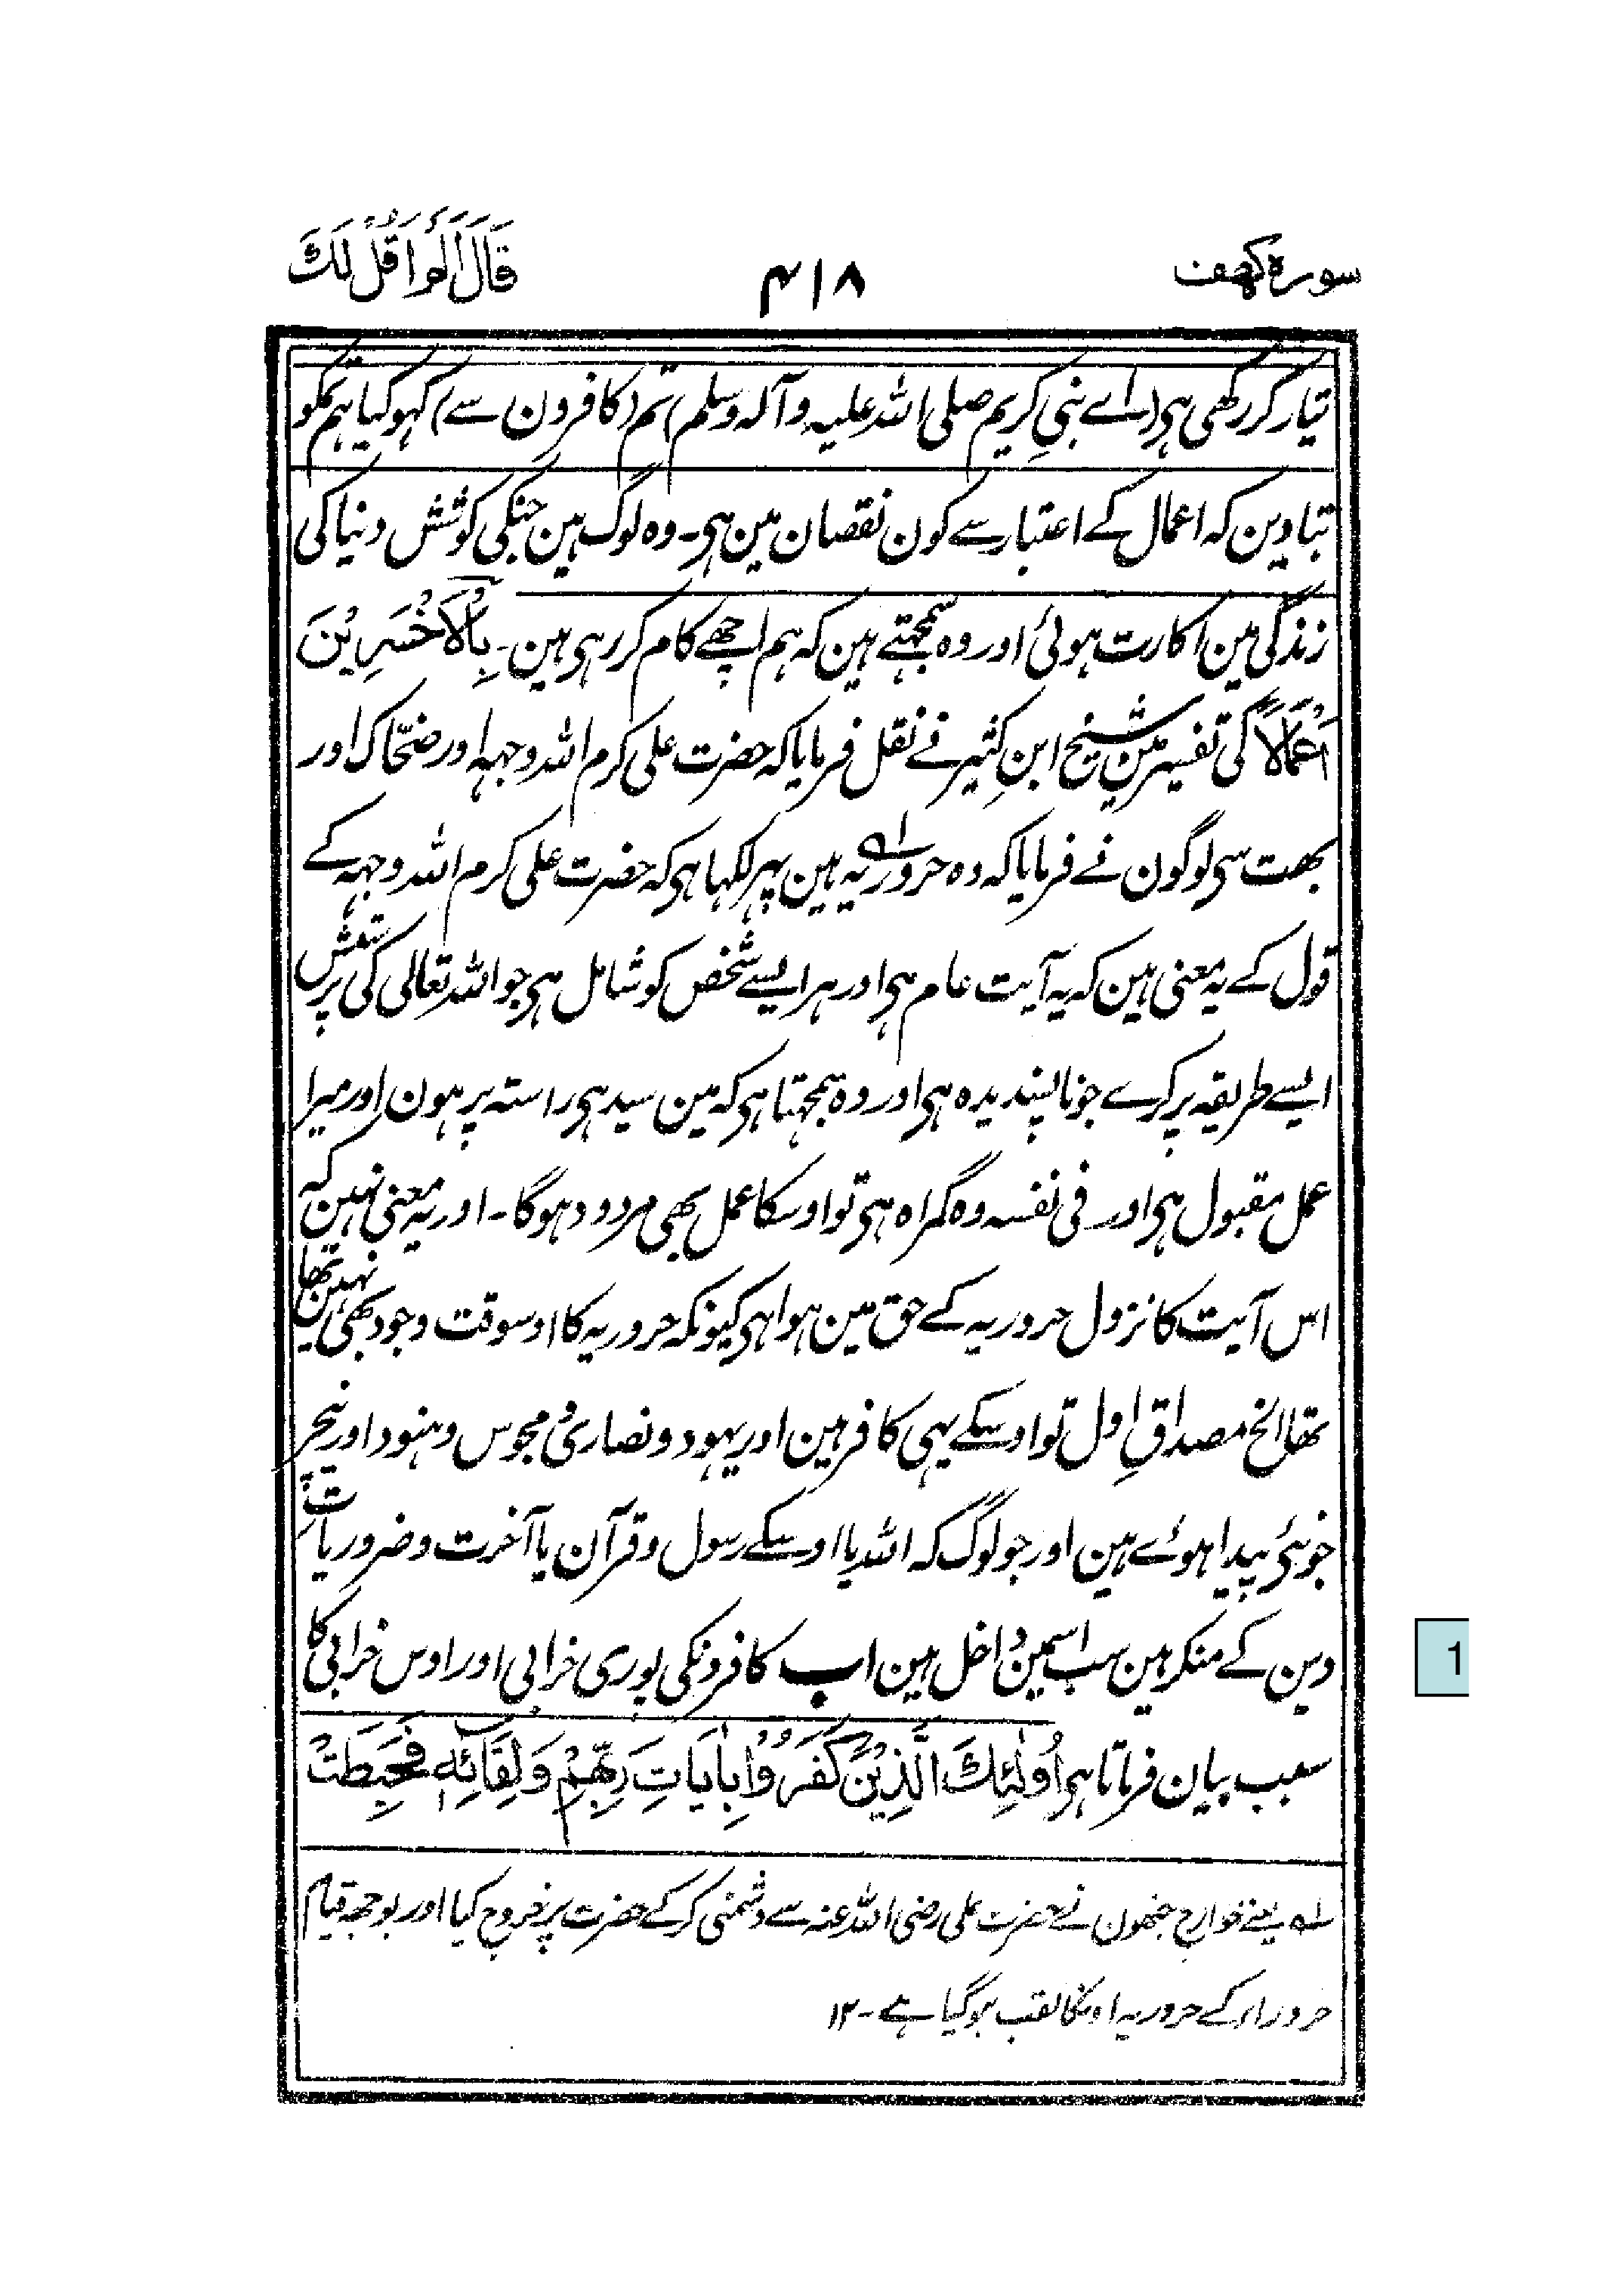 سورہ کہف
۴۱۸
قَالَ اَلَمْ اَقُلْ لَكَ
تیار کر رکھی ہی (اے نبیِ کریم صلی اللہ علیہ و آلہ وسلم) تم (کافرون سے) کہو کیا ہم تمکو
بتادین کہ اعمال کے اعتبار سے کون نقصان مین ہی۔ وہ لوگ ہین جنکی کوشش دنیا کی
زندگی مین اکارت ہوئی اور وہ سمجہتے ہین کہ ہم اچھے کام کر رہی ہین۔ بِالْاَخْسَرِیْنَ
اَعْمَالًا کی تفسیر مین شیخ ابنِ کثیر نے نقل فرمایا کہ حضرت علی کرم اللہ وجہہ اور ضحّاک اور
بھت سی لوگون نے فرمایا کہ وہ حروریہ ؎۱ ہین پہر لکہا ہی کہ حضرت علی کرم اللہ وجہہ کے
قول کے یہ معنی ہین کہ یہ آیت عام ہی اور ہر ایسے شخص کو شامل ہی جو اللہ تعالی کی پرستش
ایسے طریقہ پر کرے جو ناپسندیدہ ہی اور وہ سمجہتا ہی کہ مین سیدہی راستہ پر ہون اور میرا
عمل مقبول ہی اور فی نفسہ وہ گمراہ ہی تو اوسکا عمل بھی مردود ہوگا۔ اور یہ معنی نہین کہ
اس آیت کا نزول حروریہ کے حق مین ہوا ہی کیونکہ حروریہ کا اوسوقت وجود بھی نہین تھا
تھا الخ مصداقِ اول تو اوسکے یہی کافر ہین اور یہود و نصاریٰ و مجوس و ہنود اور نیچر
جو نئی پیدا ہوئے ہین اور جو لوگ کہ اللہ یا اوسکے رسول و قرآن یا آخرت و ضروریاتِ
دین کے منکر ہین سب اسمین داخل ہین اب کافرونکی پوری خرابی اور اوس خرابی کا
سبب بیان فرماتا ہی اُولٰٓئِكَ الَّذِیْنَ كَفَرُوْا بِاٰیَاتِ رَبِّهِمْ وَلِقَآئِهٖ فَحَبِطَتْ
؎۱ یعنے خوارج جنھون نے حضرت علی رضی اللہ عنہ سے دشمنی کرکے حضرت پر خروج کیا اور بوجہ قیام
حروراء کے حروریہ اونکا لقب ہو گیا ہے۔ ۱۲
1